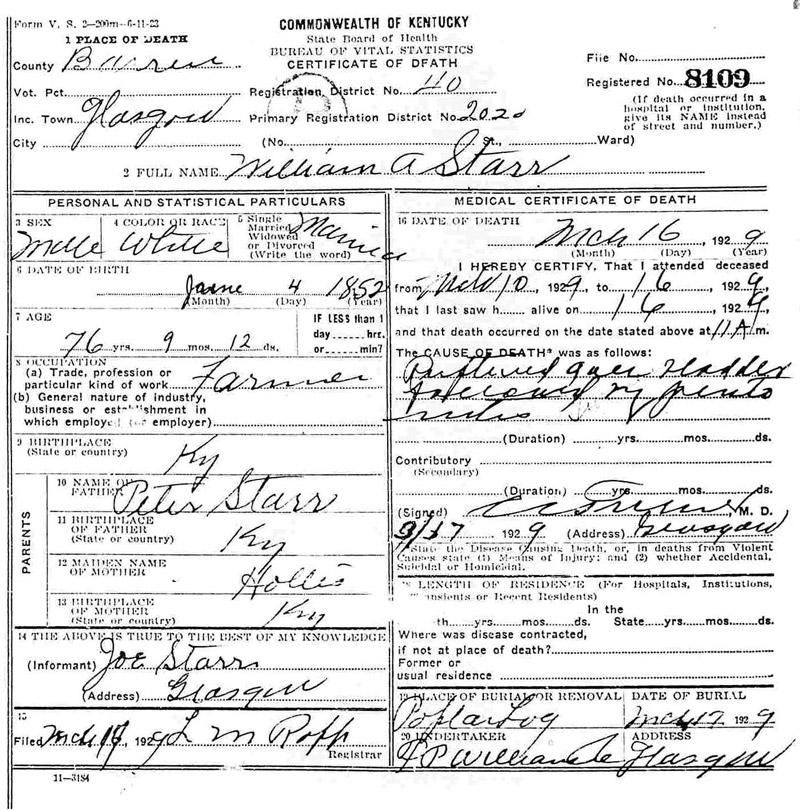 Form V. S. 2-200m-6-11-23
COMMONWEALTH OF KENTUCKY
State Board of Health
BUREAU OF VITAL STATISTICS
CERTIFICATE OF DEATH
1 PLACE OF DEATH
County Barren
File No.
Registered No. 8109
(If death occurred in a hospital or institution, give its NAME instead of street and number.)
Vot. Pct. Registration District No. 40
Inc. Town Glasgow Primary Registration District No. 2020
City (No. St., Ward)
2 FULL NAME William A Starr
PERSONAL AND STATISTICAL PARTICULARS
3 SEX Male
4 COLOR OR RACE White
5 Single Married Widowed or Divorced (Write the word) Married
6 DATE OF BIRTH
4 1852
(Month) (Day) (Year)
7 AGE
76 yrs. 9 mos. 12 ds.
IF LESS than 1 day hrs. or min?
8 OCCUPATION
(a) Trade, profession or particular kind of work Farmer
(b) General nature of industry, business or establishment in which employed (or employer)
9 BIRTHPLACE (State or country) Ky
PARENTS
10 NAME OF FATHER Peter Starr
11 BIRTHPLACE OF FATHER (State or country) Ky
12 MAIDEN NAME OF MOTHER Hollis
13 BIRTHPLACE OF MOTHER (State or country) Ky
14 THE ABOVE IS TRUE TO THE BEST OF MY KNOWLEDGE
(Informant) Joe Starr
(Address) Glasgow
15
Filed Mch 1929 L M Ropp
Registrar
11-3184
MEDICAL CERTIFICATE OF DEATH
16 DATE OF DEATH
Mch 16 1929
(Month) (Day) (Year)
I HEREBY CERTIFY, That I attended deceased
from Mch 10, 1929, to 16, 1929,
that I last saw h alive on 16, 1929,
and that death occurred on the date stated above at 11 A m.
The CAUSE OF DEATH* was as follows:
Ruptured Bladder
(Duration) yrs. mos. ds.
Contributory
(Secondary)
(Duration) yrs. mos. ds.
(Signed) M. D.
3/17 1929 (Address) Glasgow
*State the Disease Causing Death, or, in deaths from Violent Causes state (1) Means of Injury; and (2) whether Accidental, Suicidal or Homicidal.
LENGTH OF RESIDENCE (For Hospitals, Institutions, Transients or Recent Residents)
In the
th yrs. mos. ds. State yrs. mos. ds.
Where was disease contracted,
if not at place of death?
Former or
usual residence
19 PLACE OF BURIAL OR REMOVAL Poplar Log
DATE OF BURIAL Mch 17 1929
20 UNDERTAKER
ADDRESS Glasgow